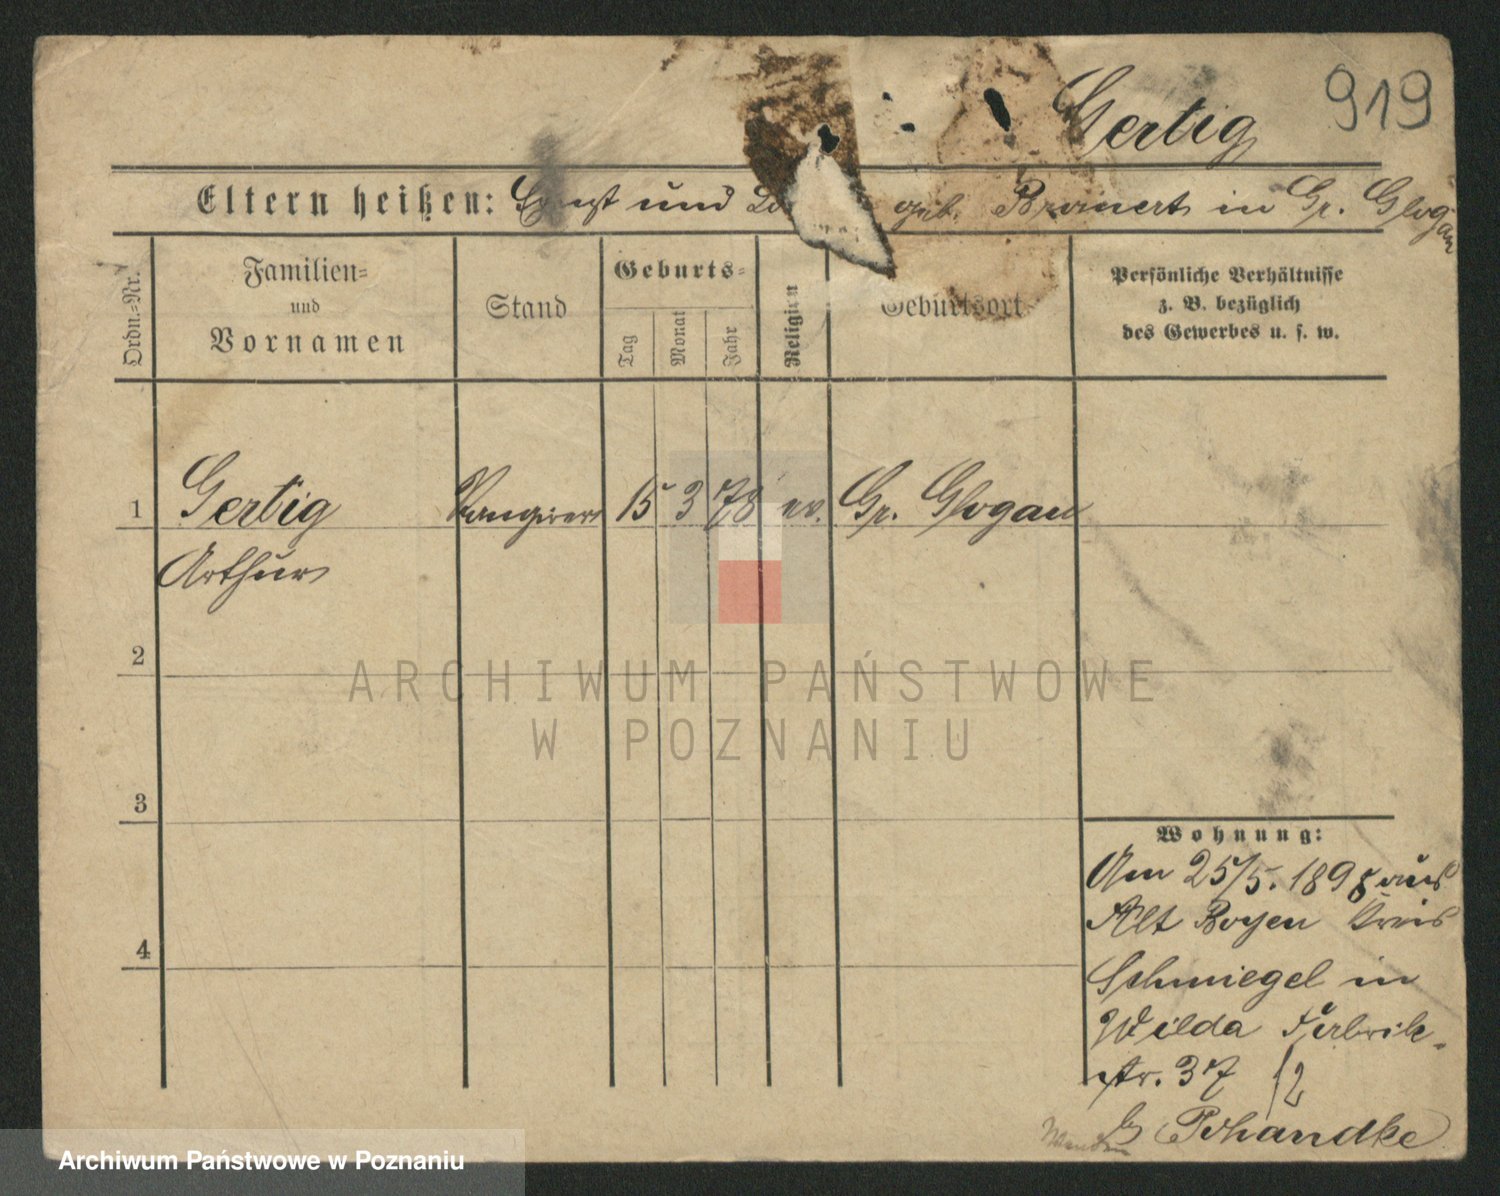 919
Gertig
Eltern heißen: Ernst und geb. Bronert in Gr. Glogau
Ordn.-Nr.
Familien- und Vornamen
Stand
Geburts-
Tag
Monat
Jahr
Religion
Geburtsort
Persönliche Verhältnisse
z. B. bezüglich
des Gewerbes u. s. w.
1 Gertig Rangierer 15 3 78 ev. Gr. Glogau
Arthur
2
3
4
Wohnung:
Am 25/5. 1898 aus
Alt Boyen Kreis
Schmiegel in
Wilda Fabrik-
str. 37
b Pohandke
ARCHIWUM PAŃSTWOWE
W POZNANIU
Archiwum Państwowe w Poznaniu